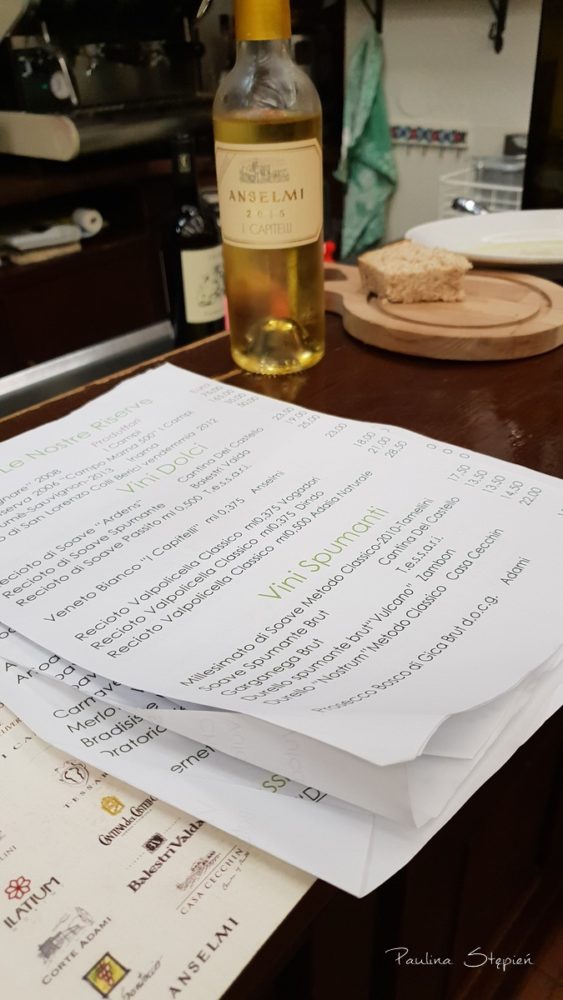 ANSELMI
2015
I CAPITELLI
Le Nostre Riserve
Produttori
I Campi
2008
2006 "Campo Marna 500" I Campi
Sauvignon 2013
di San Lorenzo Colli Berici vendemmia 2012
Vini Dolci
Recioto di Soave "Ardens" Cantina Del Castello 23.00
Recioto di Soave Spumante Balestri Valda 19.00
Recioto di Soave Passito ml 0.500 T.e.s.s.a.r.i. 25.00
Veneto Bianco "I Capitelli" ml 0.375 Anselmi 23.00
Recioto Valpolicella Classico ml0.375 Vogadori 18.00
Recioto Valpolicella Classico ml0.375 Dindo 21.00
Recioto Valpolicella Classico ml0.500 Adalia Naturale 28.50
Vini Spumanti
Millesimato di Soave Metodo Classico 2010-Tamellini
Soave Spumante Brut Cantina Del Castello 17.50
Garganega Brut T.e.s.s.a.r.i. 13.50
Durello spumante brut "Vulcano" Zambon 13.50
Durello "Nostrum" Metodo Classico Casa Cecchin 22.00
Prosecco Bosco di Gica Brut d.o.c.g. Adami
Merlo
Oratorio
TESSARI
CANTINA del CASTELLO
BALESTRI VALDA
CASA CECCHIN
ILATIUM
CORTE ADAMI
ANSELMI
Paulina Stępień